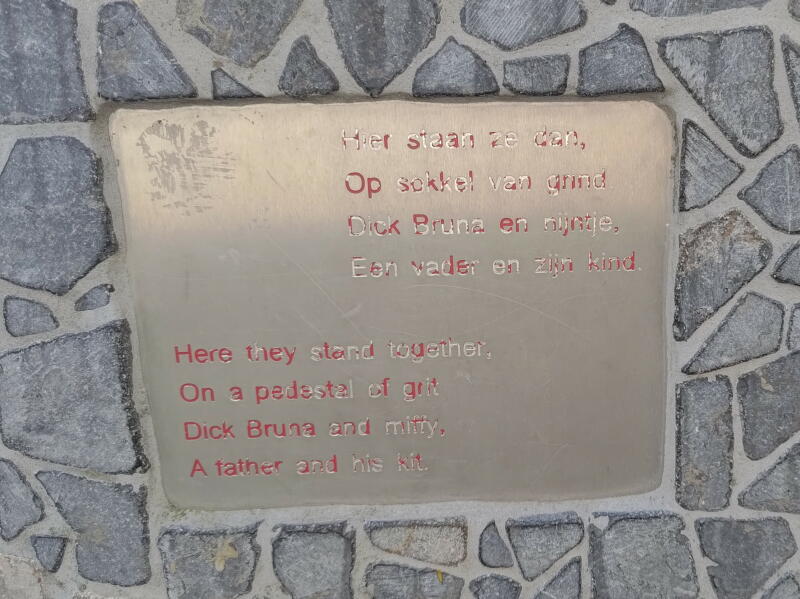 Hier staan ze dan,
Op sokkel van grind
Dick Bruna en nijntje,
Een vader en zijn kind.
Here they stand together,
On a pedestal of grit
Dick Bruna and miffy,
A father and his kit.